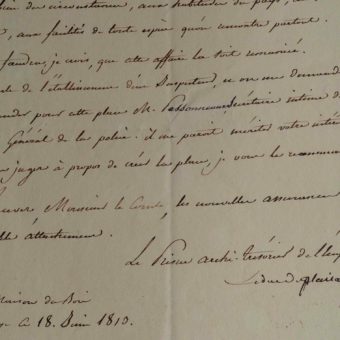 de circonstances, aux habitudes du pays, a
, aux facilités de toute espèce qu'on rencontre partout.
faudra, je crois, que cette affaire là soit renvoiée.
de l'établissement d'un Inspecteur, on me demande
pour cette place M. secrétaire intime d
Général de la police. il me parait mériter votre inté
juger à propos de créer la place, je vous le recomman
Monsieur le Comte, les nouvelles assurances
attachement.
Le Prince archi-trésorier de l'Emp
Le duc de plaisan
maison du Bois
ce 18. Juin 1813.